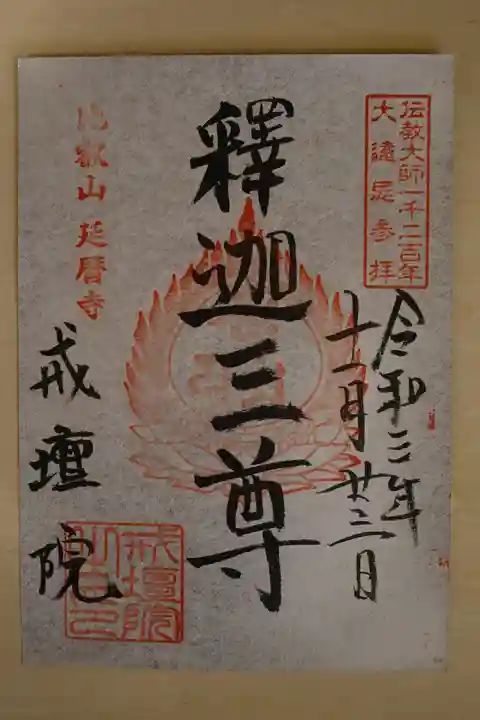 伝教大師一千二百年
大遠忌参拝
令和三年
十一月廿三日
釋迦三尊
比叡山 延暦寺
戒壇院
戒壇院